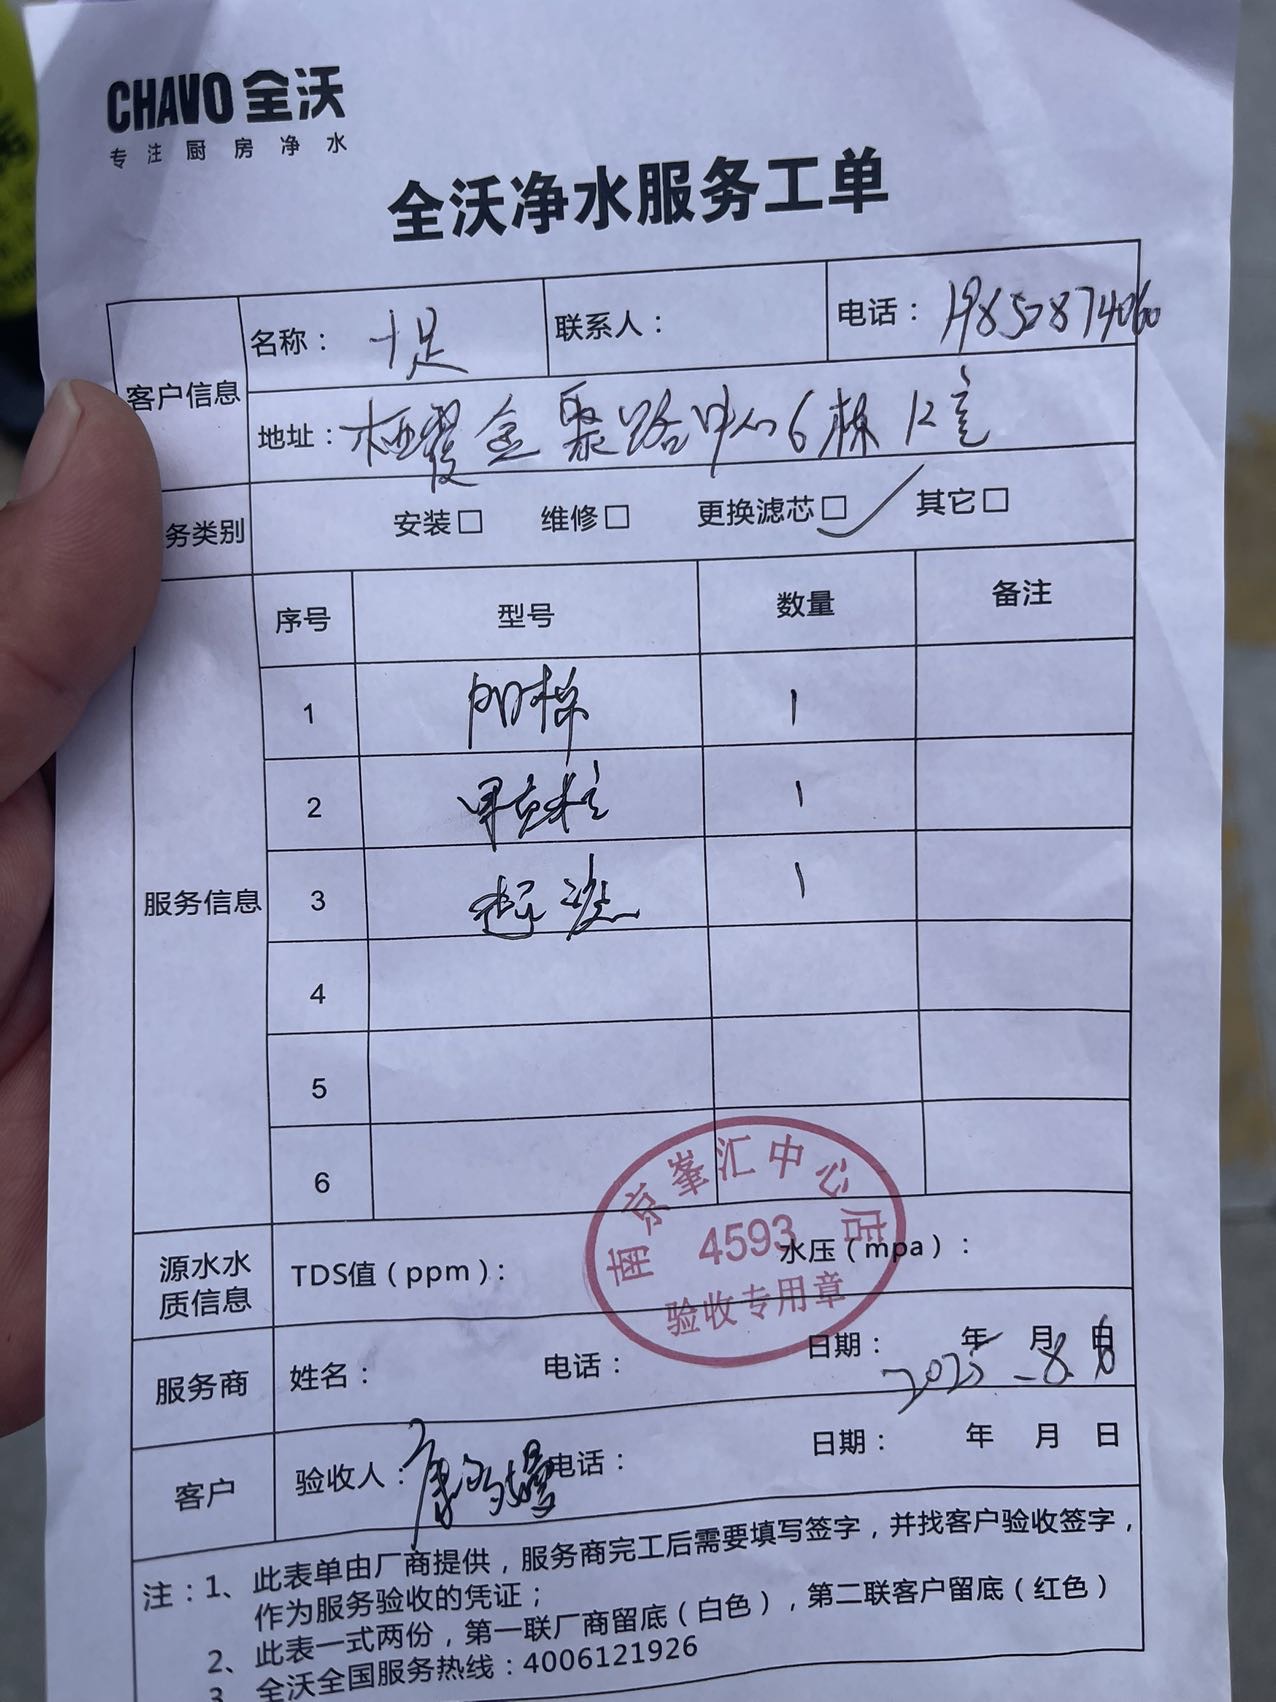 CHAVO 全沃
专注厨房净水
全沃净水服务工单
客户信息
名称： 十足
联系人：
电话： 19852874060
地址： 金聚路中心6栋12室
务类别
安装□ 维修□ 更换滤芯□ ✓ 其它□
服务信息
序号 型号 数量 备注
1 1
2 1
3 1
4
5
6
南京峯汇中心店
4593
验收专用章
源水水质信息
TDS值（ppm）： 水压（mpa）：
服务商
姓名： 电话： 日期： 年 月 日
2025.8.8
客户
验收人： 电话： 日期： 年 月 日
注：1、此表单由厂商提供，服务商完工后需要填写签字，并找客户验收签字，
作为服务验收的凭证；
2、此表一式两份，第一联厂商留底（白色），第二联客户留底（红色）
3、全沃全国服务热线：4006121926